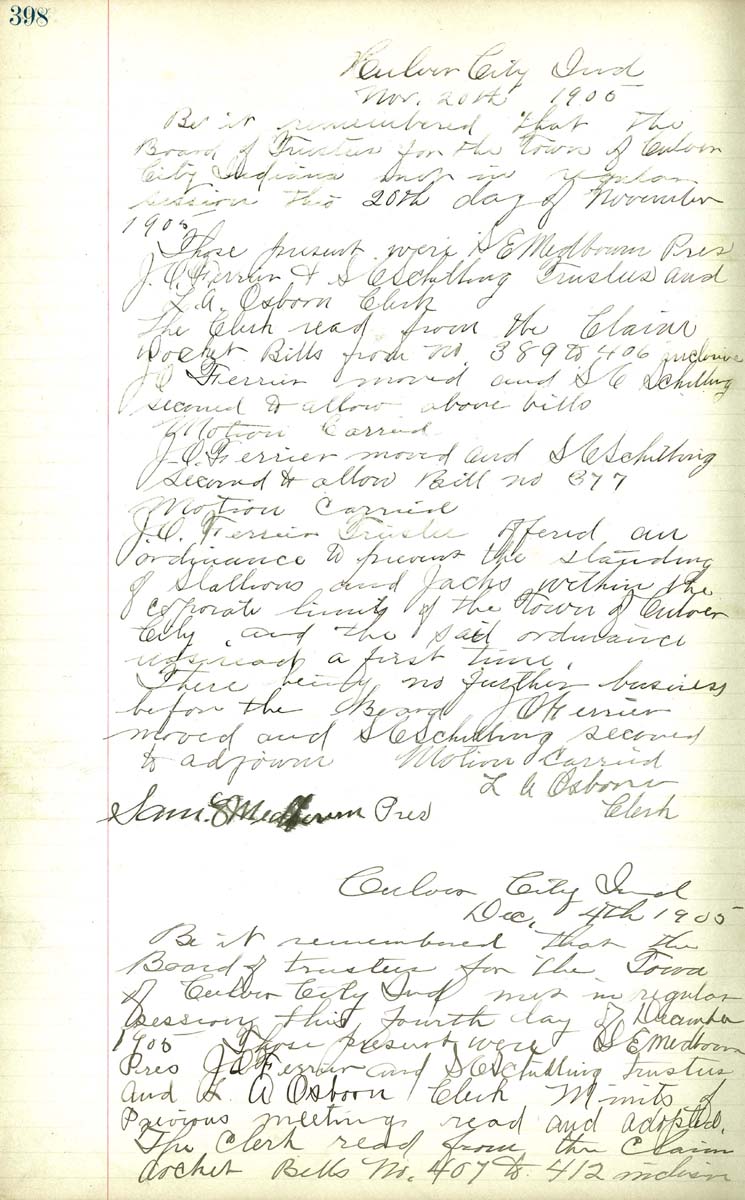 398
Culver City Ind
Nov. 20th 1905
Be it remembered that the
Board of Trustees for the Town of Culver
City Indiana met in regular
session this 20th day of November
1905
Those present were S E Medbourn Pres
J. O. Ferrier & S C Schilling Trustees and
L. A. Osborn Clerk
The Clerk read from the Claim
Docket Bills from no. 389 to 406 inclusive
J O Ferrier moved and S C Schilling
second to allow above bills
Motion Carried
J. O. Ferrier moved and S C Schilling
second to allow Bill no 377
Motion Carried
J. O. Ferrier Trustee offered an
ordinance to prevent the standing
of Stallions and Jacks within the
corporate limits of the Town of Culver
City, and the said ordinance
was read a first time.
There being no further business
before the Board J O Ferrier
moved and S C Schilling second
to adjourn Motion Carried
L A Osborn
Sam. E Medbourn Pres Clerk
Culver City Ind
Dec, 4th 1905
Be it remembered that the
Board of trustees for the Town
of Culver City Ind met in regular
session this fourth day of December
1905 Those present were S E Medbourn
Pres J O Ferrier and S C Schilling trustees
and L. A Osborn Clerk Minits of
Previous meeting read and adopted.
The Clerk read from the Claim
docket Bills No. 407 to 412 inclusive